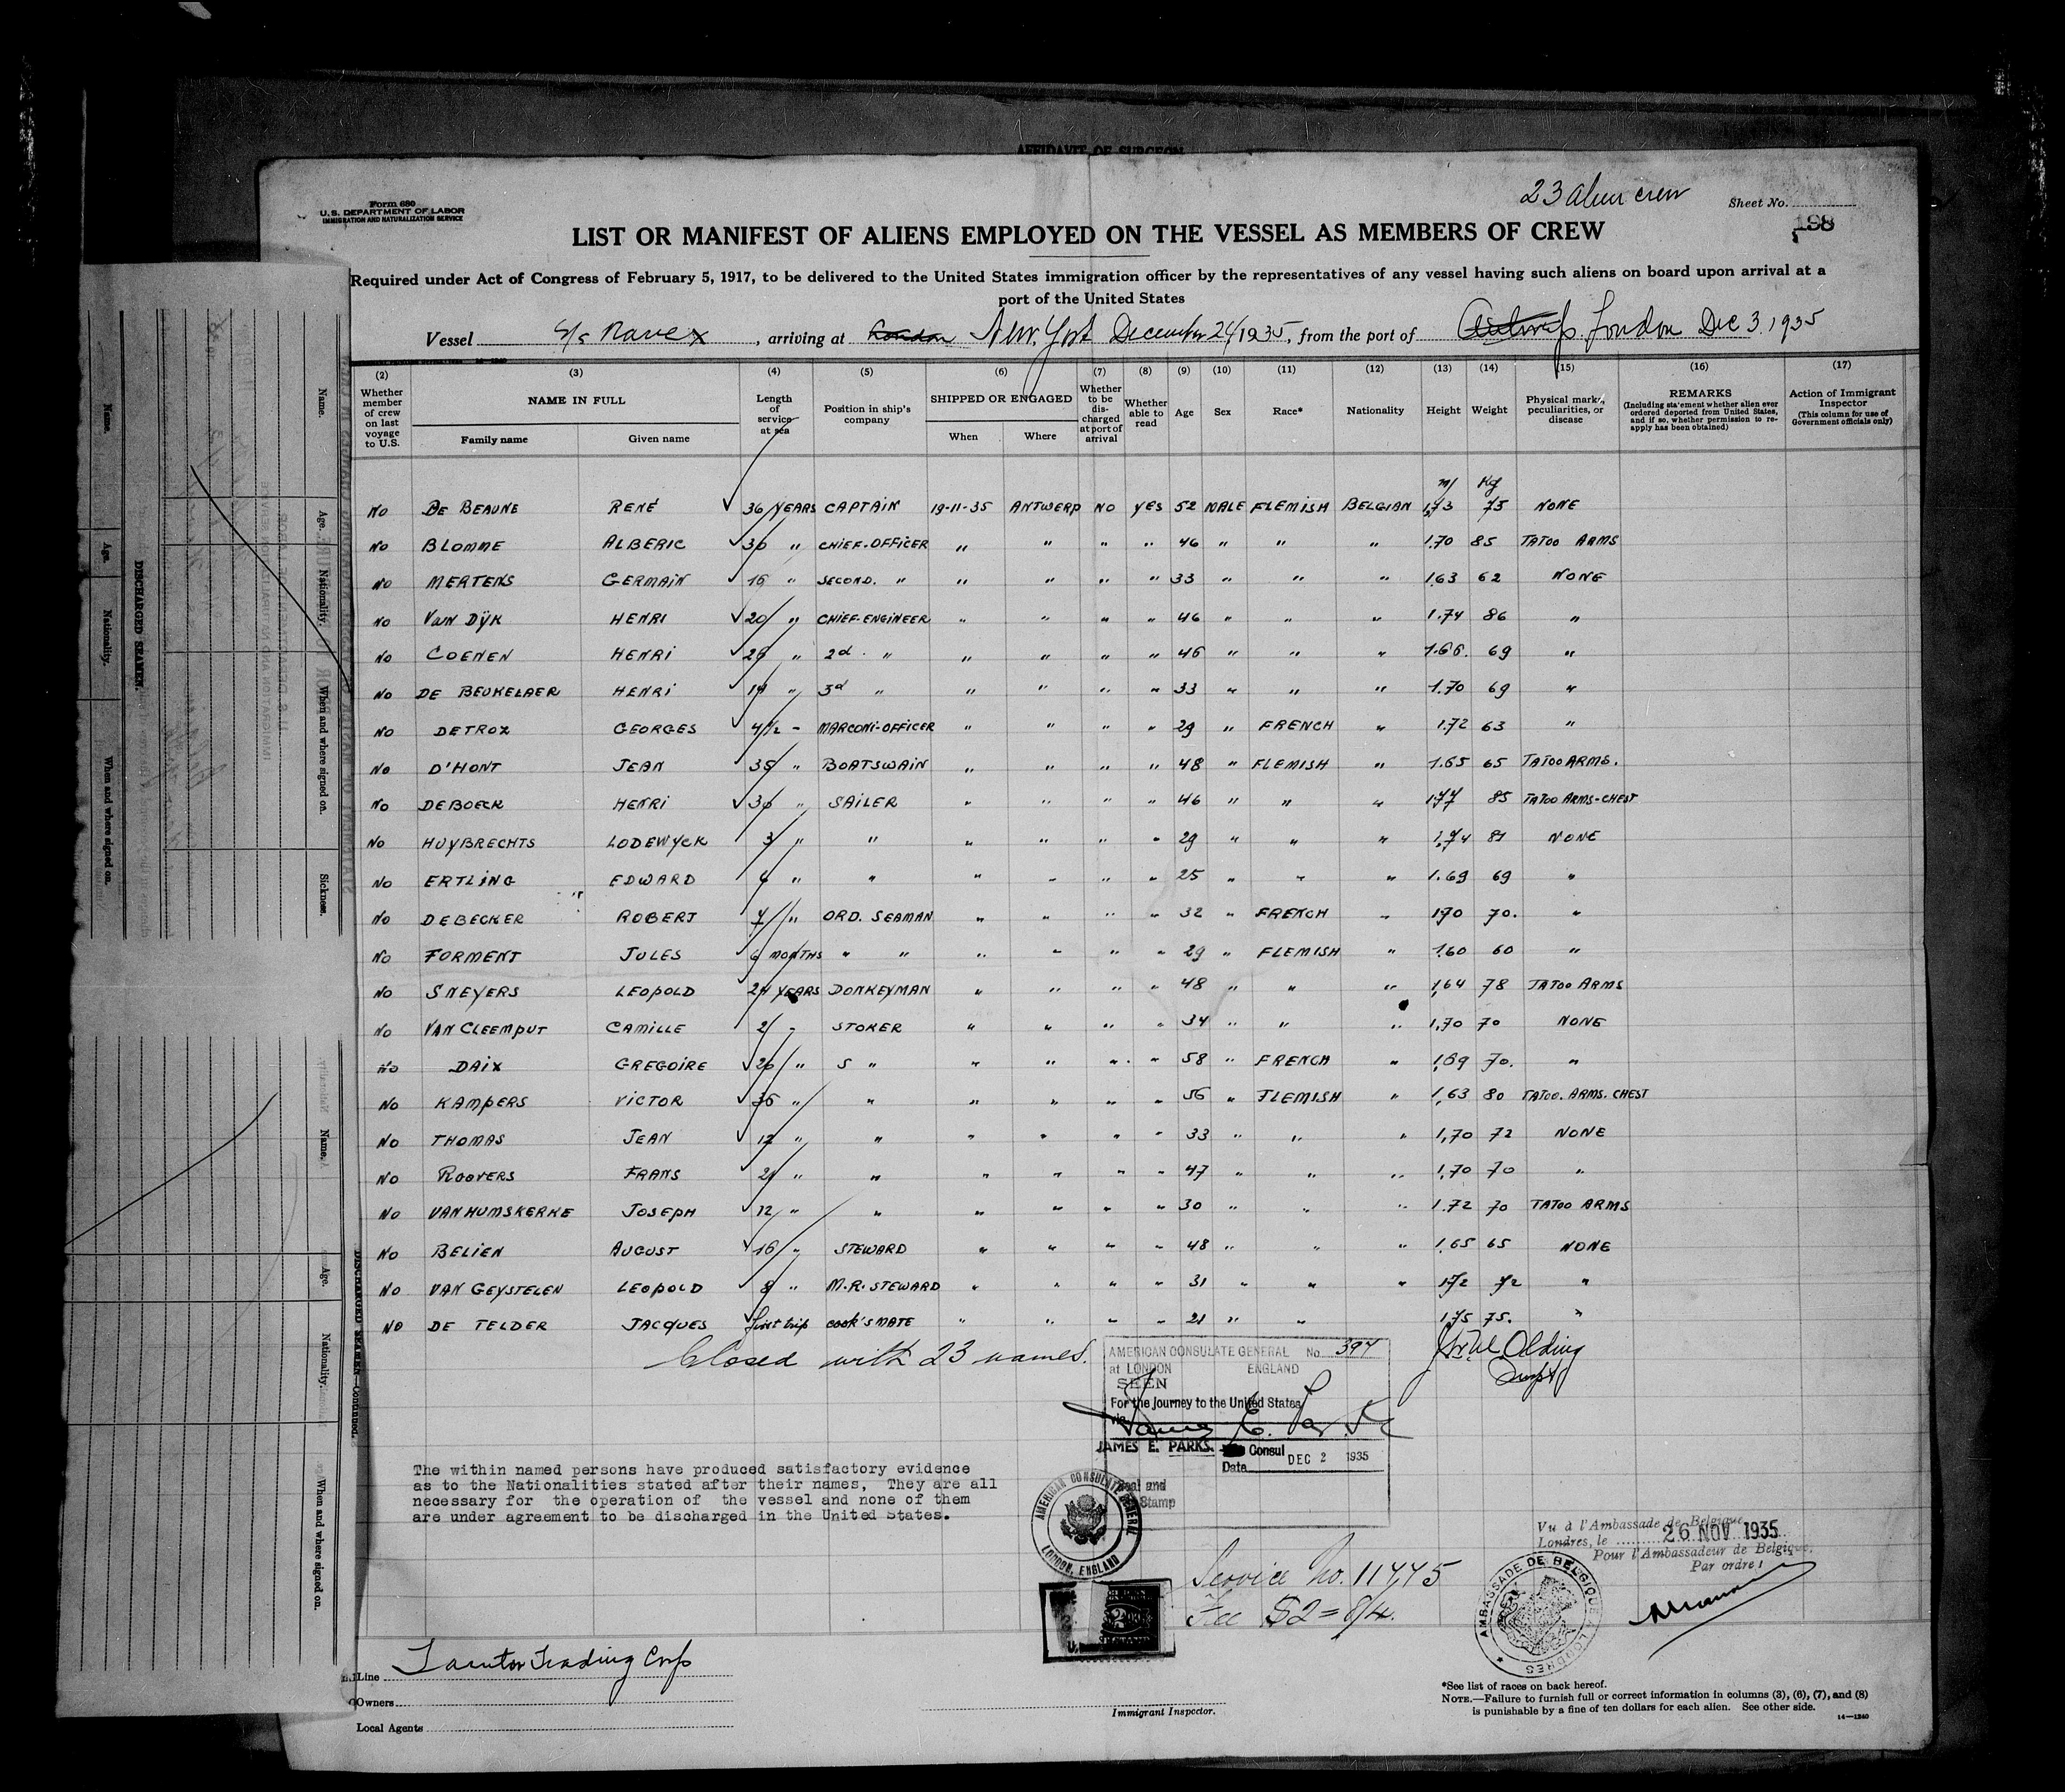 AFFIDAVIT OF SURGEON
Form 680
U. S. DEPARTMENT OF LABOR
IMMIGRATION AND NATURALIZATION SERVICE
23 alien crew
Sheet No.
198
LIST OR MANIFEST OF ALIENS EMPLOYED ON THE VESSEL AS MEMBERS OF CREW
Required under Act of Congress of February 5, 1917, to be delivered to the United States immigration officer by the representatives of any vessel having such aliens on board upon arrival at a
port of the United States
Vessel S/S Navex, arriving at London New York December 24/1935, from the port of Antwerp. London Dec 3. 1935
(2) (3) (4) (5) (6) (7) (8) (9) (10) (11) (12) (13) (14) (15) (16) (17)
Whether member of crew on last voyage to U.S. NAME IN FULL Family name Given name Length of service at sea Position in ship's company SHIPPED OR ENGAGED When Where Whether to be discharged at port of arrival Whether able to read Age Sex Race* Nationality Height Weight Physical marks, peculiarities, or disease REMARKS (Including statement whether alien ever ordered deported from United States, and if so, whether permission to re-apply has been obtained) Action of Immigrant Inspector (This column for use of Government officials only)
M/ Kg
No DE BEAUNE RENÉ 36 YEARS CAPTAIN 19-11-35 ANTWERP NO YES 52 MALE FLEMISH BELGIAN 1,73 75 NONE
No BLOMME ALBERIC 30 " CHIEF-OFFICER " " " " 46 " " " 1.70 85 TATOO ARMS
No MERTENS GERMAIN 16 " SECOND. " " " " " 33 " " " 1.63 62 NONE
No VAN DYK HENRI 20 " CHIEF-ENGINEER " " " " 46 " " " 1.74 86 "
No COENEN HENRI 26 " 2d " " " " " 46 " " " 1.66. 69 "
No DE BEUKELAER HENRI 14 " 3d " " " " " 33 " " " 1.70 69 "
No DETROZ GEORGES 4 1/2 - MARCONI-OFFICER " " " " 29 " FRENCH " 1.72 63 "
No D'HONT JEAN 35 " BOATSWAIN " " " " 48 " FLEMISH " 1.65 65 TATOO ARMS.
No DEBOECK HENRI 30 " SAILER " " " " 46 " " " 1.77 85 TATOO ARMS-CHEST
No HUYBRECHTS LODEWYCK 3 " " " " " " 29 " " " 1,74 81 NONE
No ERTLING EDWARD 4 " " " " " " 25 " " " 1.69 69 "
No DEBECKER ROBERT 7 " ORD. SEAMAN " " " " 32 " FRENCH " 170 70. "
No FORMENT JULES 6 MONTHS " " " " " " 29 " FLEMISH " 1.60 60 "
No SNEYERS LEOPOLD 24 YEARS DONKEYMAN " " " " 48 " " " 1,64 78 TATOO ARMS
No VAN CLEEMPUT CAMILLE 2 " STOKER " " " " 34 " " " 1,70 70 NONE
No DAIX GREGOIRE 26 " S " " " " " 58 " FRENCH " 1,69 70. "
No KAMPERS VICTOR 35 " " " " " " 56 " FLEMISH " 1,63 80 TATOO. ARMS. CHEST
No THOMAS JEAN 12 " " " " " " 33 " " " 1,70 72 NONE
No ROOVERS FRANS 21 " " " " " " 47 " " " 1,70 70 "
No VAN HUMSKERKE JOSEPH 12 " " " " " " 30 " " " 1.72 70 TATOO ARMS
No BELIEN AUGUST 16 " STEWARD " " " " 48 " " " 1,65 65 NONE
No VAN GEYSTELEN LEOPOLD 8 " M.R. STEWARD " " " " 31 " " " 172 72 "
No DE TELDER JACQUES first trip COOK'S MATE " " " " 21 " " 1,75 75. "
Closed with 23 names.
AMERICAN CONSULATE GENERAL No. 397
at LONDON ENGLAND
SEEN
For the journey to the United States
via
James E. Parks
JAMES E. PARKS. Consul
Date DEC 2 1935
Seal and
Stamp
Olding
Supt
The within named persons have produced satisfactory evidence
as to the Nationalities stated after their names, They are all
necessary for the operation of the vessel and none of them
are under agreement to be discharged in the United States.
AMERICAN CONSULATE GENERAL
LONDON, ENGLAND
Service No. 11445
Fee $2 = 8/4.
Vu à l'Ambassade de Belgique
Londres, le 26 NOV 1935
Pour l'Ambassadeur de Belgique,
Par ordre:
AMBASSADE DE BELGIQUE LONDRES
Line Tainter Trading Corp
Owners
Local Agents
Immigrant Inspector.
*See list of races on back hereof.
NOTE.—Failure to furnish full or correct information in columns (3), (6), (7), and (8)
is punishable by a fine of ten dollars for each alien. See other side.
14—1240
DISCHARGED SEAMEN.
Name. Age. Nationality. When and where signed on.
Name. Age. Nationality. When and where signed on. Sickness.
DISCHARGED SEAMEN—Continued.
Name. Age. Nationality. When and where signed on.